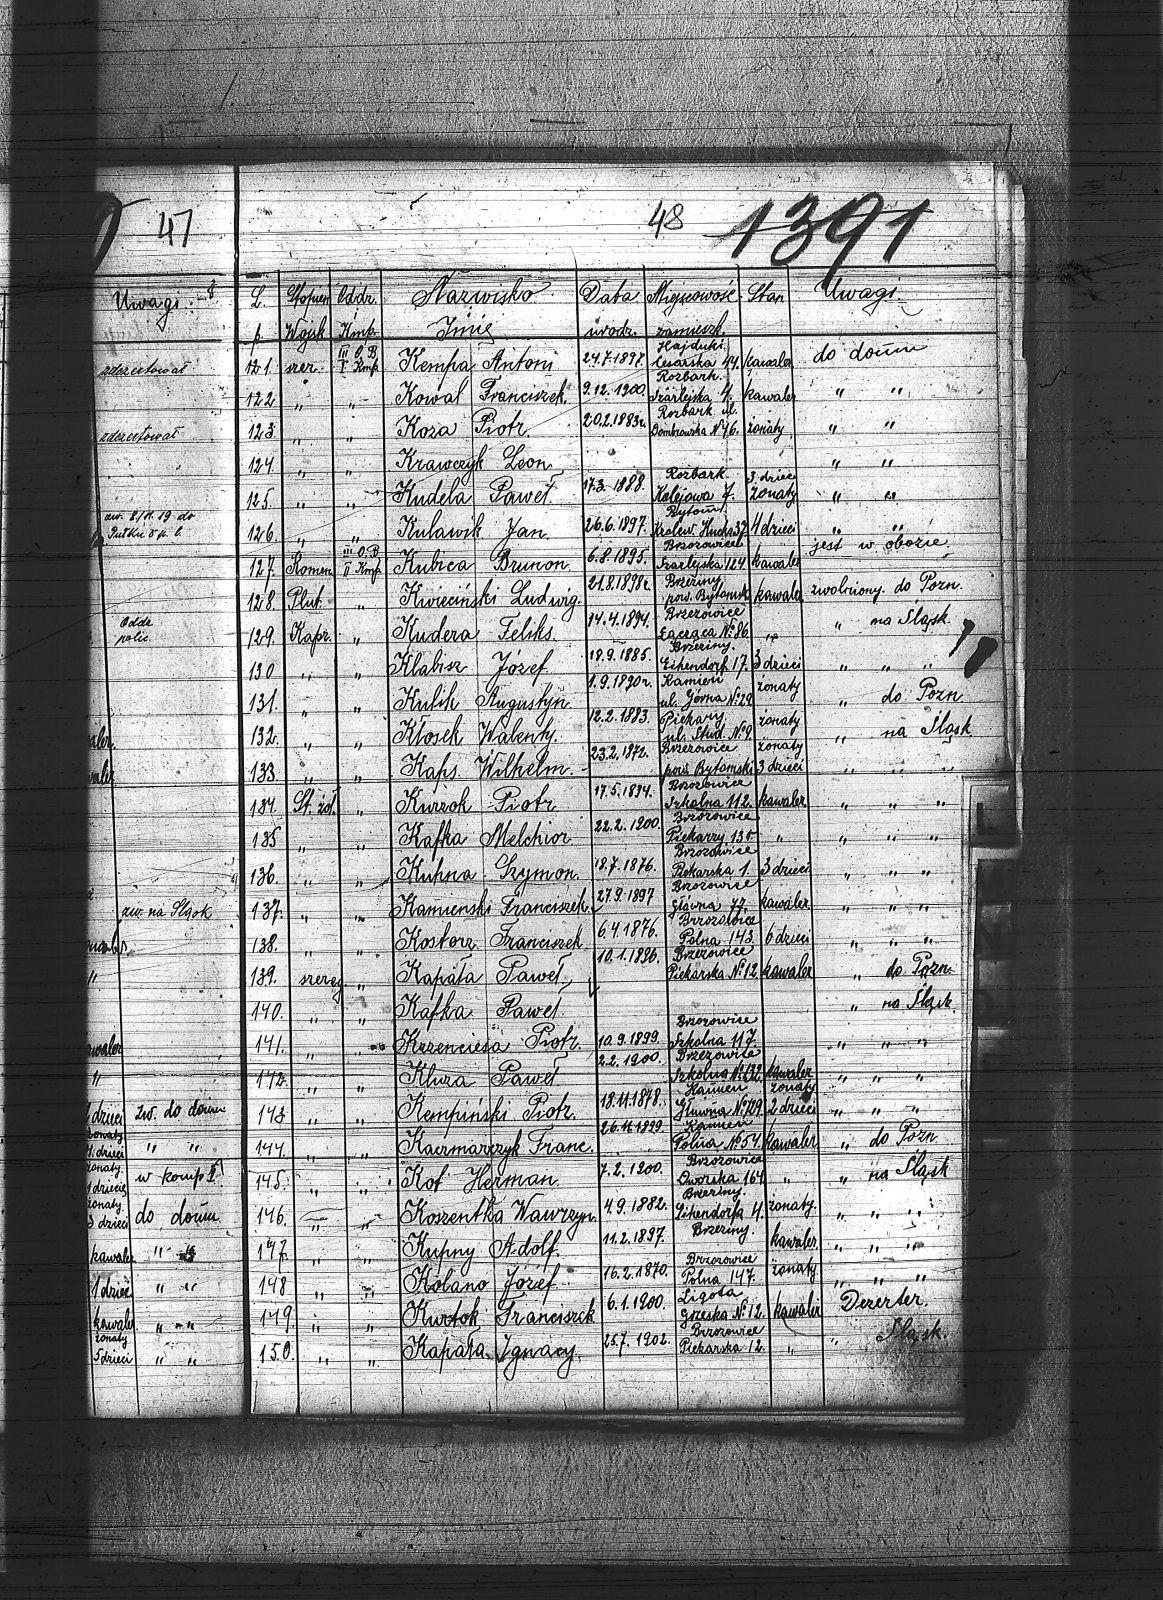 47
Uwagi
zdezertował
zdezertował
zw. 8/11.19 do
Pułku
Oddz
polic.
zw. na Śląsk
dzieci zw. do domu
żonaty
1. dzieci " "
żonaty w komp I
1 dziecię
żonaty do domu
3 dzieci
kawaler " "
1 dzieci " "
kawaler " "
żonaty
5 dzieci " "
48 1391
L. Stopień Oddz. Nazwisko Data Miejscowość Stan Uwagi
p. Wojsk Kmp. Imię urodz. zamieszk.
121. szer. III O.B I Kmp. Kempa Antoni 24.7.1897. Hajduki Cesarska 44. kawaler do domu
122. " " Kowal Franciszek. 9.12.1900. Rozbark. Szarlejska 4. kawaler " "
123. " " Koza Piotr. 20.2.1883r. Rozbark ul. Dombrowska № 46. żonaty " "
124. " " Krawczyk Leon " "
125. " " Kudela Paweł 17.3.1888. Rozbark. Kolejowa 7. 3 dzieci żonaty " "
126. " " Kulawik Jan. 26.6.1897. Bytom. Królew. Hucka 37. 4 dzieci " "
127. Komen. III O.B II Kmp. Kubica Brunon 6.8.1895. Brzozowice Szarlejska 124 kawaler jest w obozie
128. Plut. " Kwieciński Ludwig. 21.8.1898r. Brzeziny pow. Bytomsk kawaler zwolniony do Pozn.
129. Kapr. " Kudera Feliks. 14.4.1894. Brzozowice Łącząca № 86 " " na Śląsk.
130 " " Klabisz Józef 18.9.1885. Brzeziny. Eihendorf 17. 3 dzieci " " "
131. " " Kulik Augustyn 1.9.1890r. Kamień ul. Górna № 29 żonaty " do Pozn
132. " " Kłosek Walenty. 12.2.1883. Piekary ul. Stud. № 9 żonaty " na Śląsk
133. " " Kaps. Wilhelm. 23.2.1872. Brzozowice pow. Bytomski żonaty 3 dzieci " " "
134. St. żoł. " Kurzok Piotr 17.5.1894. Brzozowice Szkolna 112. kawaler " " "
135 " " Kafka Melchior 22.2.1900. Brzozowice Piekarzy 136 " " " "
136. " " Kupna Szymon. 18.7.1876. Brzozowice Piekarska 1. 3 dzieci " " "
137. " " Kamienski Franciszek. 27.9.1897 Brzozowice Główna 77. kawaler. " " "
138. " " Kostorz Franciszek 6.4.1876. Brzozowice Polna 143. 6 dzieci " " "
139. szereg. " Kapała Paweł, 10.1.1896. Brzezowice Piekarska № 12 kawaler " do Pozn.
140. " " Kafka Paweł " na Śląsk.
141. " " Krzenciesa Piotr. 10.9.1899. Brzozowice Szkolna 117. " " "
142. " " Kluza Paweł 2.2.1900. Brzezowice Szkolna № 132. kawaler " " "
143 " " Kempiński Piotr. 18.11.1878. Kamień Główna № 129 żonaty 2 dzieci " " "
144. " " Kaczmarczyk Franc. 26.11.1899 Kamień Polna № 54. kawaler " do Pozn
145. " " Kot Herman. 7.2.1900. Brzozowice Dworska 164 " " na Śląsk
146. " " Koszentka Wawrzyn. 4.9.1882. Brzeziny. Eihendorfa 4. żonaty. " " "
147. " " Kupny Adolf. 11.2.1897. Brzeziny. kawaler " " "
148 " " Kobano Józef 16.2.1870. Brzozowice Polna 147. żonaty " " "
149. " " Kurtok Franciszek 6.1.1900. Ligota Grzeska № 12. kawaler Dezerter.
150. " " Kapała Ignacy. 25.7.1902. Brzozowice Piekarska 12. " " Śląsk.